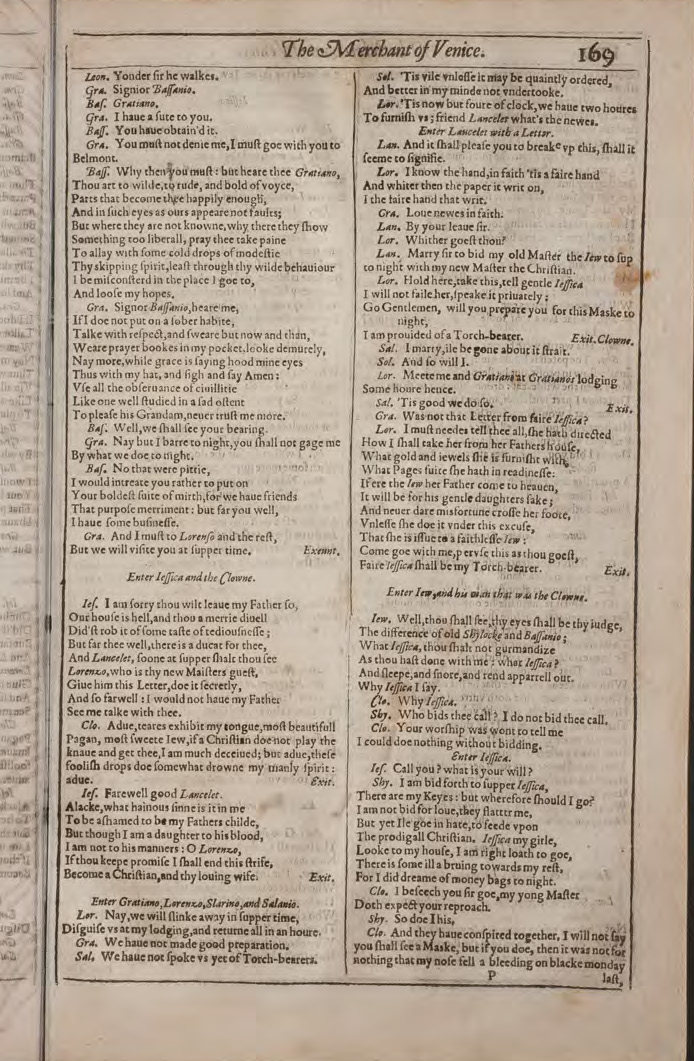 The Merchant of Venice. 169
Leon. Yonder sir he walkes.
Gra. Signior Bassanio.
Bas. Gratiano.
Gra. I haue a sute to you.
Bass. You haue obtain'd it.
Gra. You must not denie me, I must goe with you to
Belmont.
Bass. Why then you must: but heare thee Gratiano,
Thou art to wilde, to rude, and bold of voyce,
Parts that become thee happily enough,
And in such eyes as ours appeare not faults;
But where they are not knowne, why there they show
Something too liberall, pray thee take paine
To allay with some cold drops of modestie
Thy skipping spirit, least through thy wilde behauiour
I be misconsterd in the place I goe to,
And loose my hopes.
Gra. Signor Bassanio, heare me,
If I doe not put on a sober habite,
Talke with respect, and sweare but now and than,
Weare prayer bookes in my pocket, looke demurely,
Nay more, while grace is saying hood mine eyes
Thus with my hat, and sigh and say Amen:
Vse all the obseruance of ciuillitie
Like one well studied in a sad ostent
To please his Grandam, neuer trust me more.
Bas. Well, we shall see your bearing.
Gra. Nay but I barre to night, you shall not gage me
By what we doe to night.
Bas. No that were pittie,
I would intreate you rather to put on
Your boldest suite of mirth, for we haue friends
That purpose merriment: but far you well,
I haue some businesse.
Gra. And I must to Lorenso and the rest,
But we will visite you at supper time. Exeunt.
Enter Iessica and the Clowne.
Ies. I am sorry thou wilt leaue my Father so,
Our house is hell, and thou a merrie diuell
Did'st rob it of some taste of tediousnesse;
But far thee well, there is a ducat for thee,
And Lancelet, soone at supper shalt thou see
Lorenzo, who is thy new Maisters guest,
Giue him this Letter, doe it secretly,
And so farwell: I would not haue my Father
See me talke with thee.
Clo. Adue, teares exhibit my tongue, most beautifull
Pagan, most sweete Iew, if a Christian doe not play the
knaue and get thee, I am much deceiued; but adue, these
foolish drops doe somewhat drowne my manly spirit:
adue. Exit.
Ies. Farewell good Lancelet.
Alacke, what hainous sinne is it in me
To be ashamed to be my Fathers childe,
But though I am a daughter to his blood,
I am not to his manners: O Lorenzo,
If thou keepe promise I shall end this strife,
Become a Christian, and thy louing wife. Exit.
Enter Gratiano, Lorenzo, Slarino, and Salanio.
Lor. Nay, we will slinke away in supper time,
Disguise vs at my lodging, and returne all in an houre.
Gra. We haue not made good preparation.
Sal. We haue not spoke vs yet of Torch-bearers.
Sol. 'Tis vile vnlesse it may be quaintly ordered,
And better in my minde not vndertooke.
Lor. 'Tis now but foure of clock, we haue two houres
To furnish vs; friend Lancelet what's the newes.
Enter Lancelet with a Letter.
Lan. And it shall please you to breake vp this, shall it
seeme to signifie.
Lor. I know the hand, in faith 'tis a faire hand
And whiter then the paper it writ on,
I the faire hand that writ.
Gra. Loue newes in faith.
Lan. By your leaue sir.
Lor. Whither goest thou?
Lan. Marry sir to bid my old Master the Iew to sup
to night with my new Master the Christian.
Lor. Hold here, take this, tell gentle Iessica
I will not faile her, speake it priuately:
Go Gentlemen, will you prepare you for this Maske to
night,
I am prouided of a Torch-bearer. Exit. Clowne.
Sal. I marry, ile be gone about it strait.
Sol. And so will I.
Lor. Meete me and Gratiano at Gratianos lodging
Some houre hence.
Sal. 'Tis good we do so. Exit.
Gra. Was not that Letter from faire Iessica?
Lor. I must needes tell thee all, she hath directed
How I shall take her from her Fathers house,
What gold and iewels she is furnisht with,
What Pages suite she hath in readinesse:
If ere the Iew her Father come to heauen,
It will be for his gentle daughters sake;
And neuer dare misfortune crosse her foote,
Vnlesse she doe it vnder this excuse,
That she is issue to a faithlesse Iew:
Come goe with me, pervse this as thou goest,
Faire Iessica shall be my Torch-bearer. Exit.
Enter Iew, and his man that was the Clowne.
Iew. Well, thou shall see, thy eyes shall be thy iudge,
The difference of old Shylocke and Bassanio;
What Iessica, thou shalt not gurmandize
As thou hast done with me: what Iessica?
And sleepe, and snore, and rend apparrell out.
Why Iessica I say.
Clo. Why Iessica.
Shy. Who bids thee call? I do not bid thee call.
Clo. Your worship was wont to tell me
I could doe nothing without bidding.
Enter Iessica.
Ies. Call you? what is your will?
Shy. I am bid forth to supper Iessica,
There are my Keyes: but wherefore should I go?
I am not bid for loue, they flatter me,
But yet Ile goe in hate, to feede vpon
The prodigall Christian. Iessica my girle,
Looke to my house, I am right loath to goe,
There is some ill a bruing towards my rest,
For I did dreame of money bags to night.
Clo. I beseech you sir goe, my yong Master
Doth expect your reproach.
Shy. So doe I his.
Clo. And they haue conspired together, I will not say
you shall see a Maske, but if you doe, then it was not for
nothing that my nose fell a bleeding on blacke monday
P last,